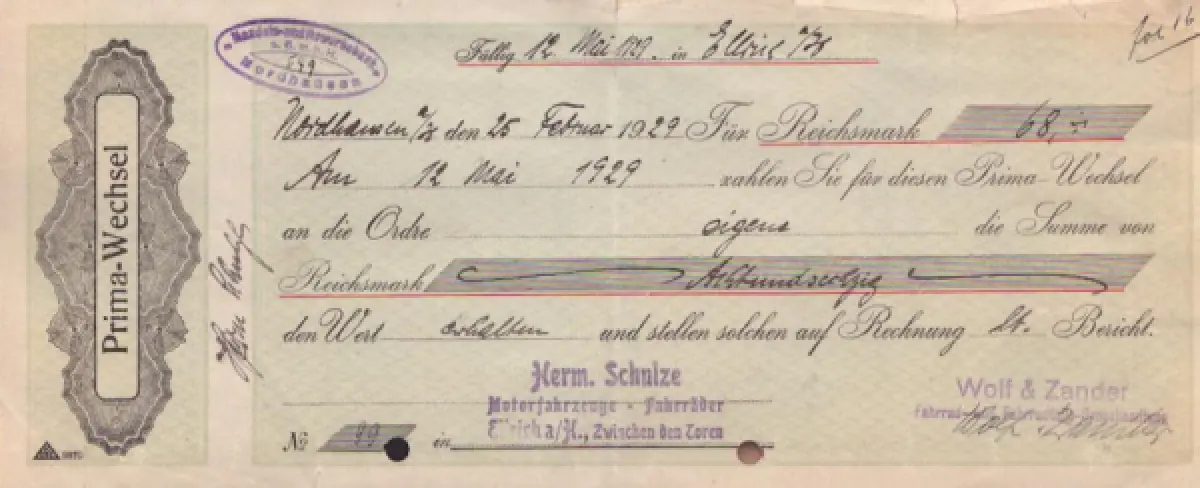 Handels- und Gewerbebank
e.G.m.b.H.
Nordhausen
fol 16
Fällig 12 Mai 1929. in Ellrich a/H
Nordhausen a/H den 25 Februar 1929 Für Reichsmark 68,--
Am 12 Mai 1929 zahlen Sie für diesen Prima-Wechsel
an die Ordre eigene die Summe von
Reichsmark Achtundsechzig
den Wert erhalten und stellen solchen auf Rechnung lt. Bericht.
Prima-Wechsel
Herm. Schulze
Motorfahrzeuge - Fahrräder
Ellrich a/H., Zwischen den Toren
№ 29 in
Wolf & Zander
Wolf Zander